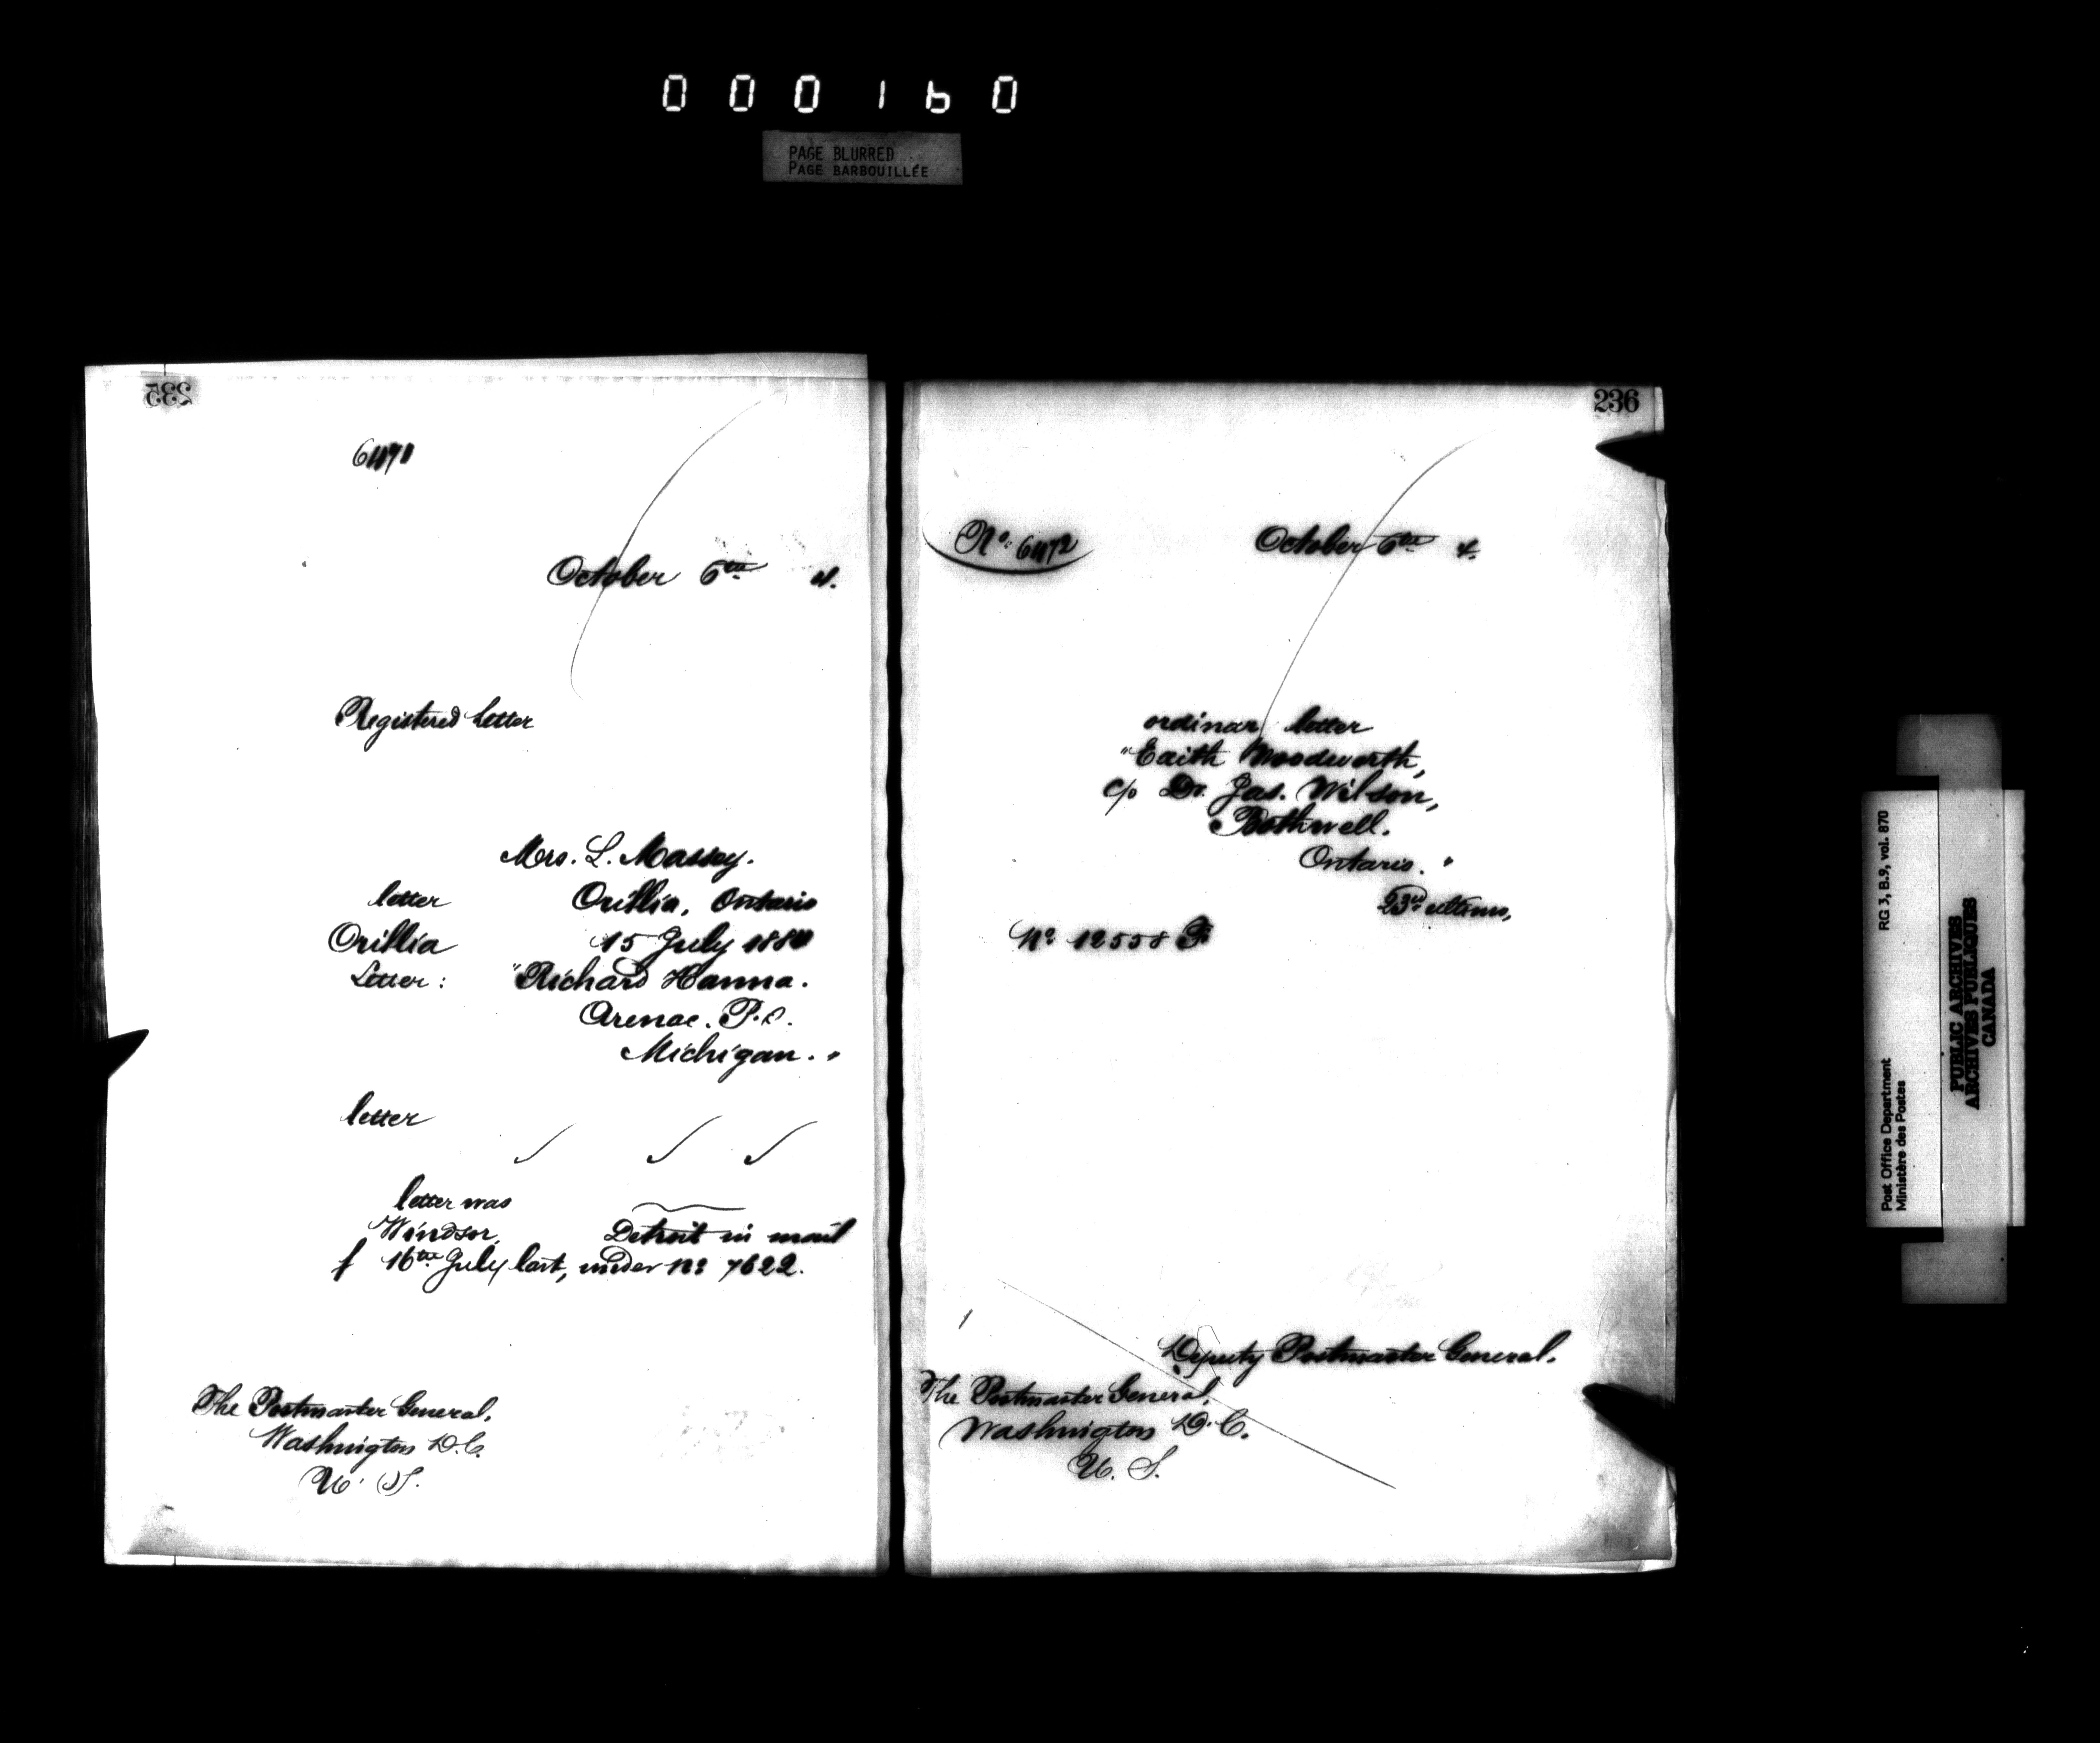 000160
PAGE BLURRED
PAGE BARBOUILLÉE
235
6471
October 6th 4.
Registered letter
Mrs. L. Massey.
letter Orillia, Ontario
Orillia 15 July 1884
Letter: "Richard Hanna.
Arenac. P.O.
Michigan."
letter
letter was
Windsor, Detroit in mail
f 16th July last, under No 7622.
The Postmaster General,
Washington D.C.
U.S.
236
No. 6472 October 6th 4.
ordinar letter
"Edith Woodworth,
c/o Dr. Jas. Wilson,
Bothwell.
Ontario."
23rd ultimo,
No 12558 F
Deputy Postmaster General.
The Postmaster General,
Washington D.C.
U.S.
RG 3, B.9, vol. 870
Post Office Department
Ministère des Postes
PUBLIC ARCHIVES
ARCHIVES PUBLIQUES
CANADA